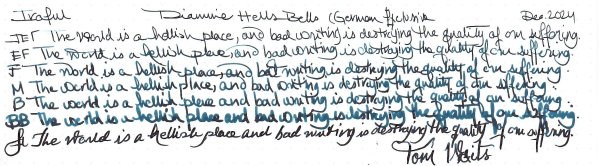 Iroful Diamine Hells Bells (German Exclusive Dec. 2024
JEF The world is a hellish place, and bad writing is destroying the quality of our suffering.
EF The world is a hellish place, and bad writing is destroying the quality of our suffering.
F The world is a hellish place, and bad writing is destroying the quality of our suffering.
M The world is a hellish place, and bad writing is destroying the quality of our suffering.
B The world is a hellish place and bad writing is destroying the quality of our suffering.
BB The world is a hellish place and bad writing is destroying the quality of our suffering.
The world is a hellish place and bad writing is destroying the quality of our suffering.
Tom Waits